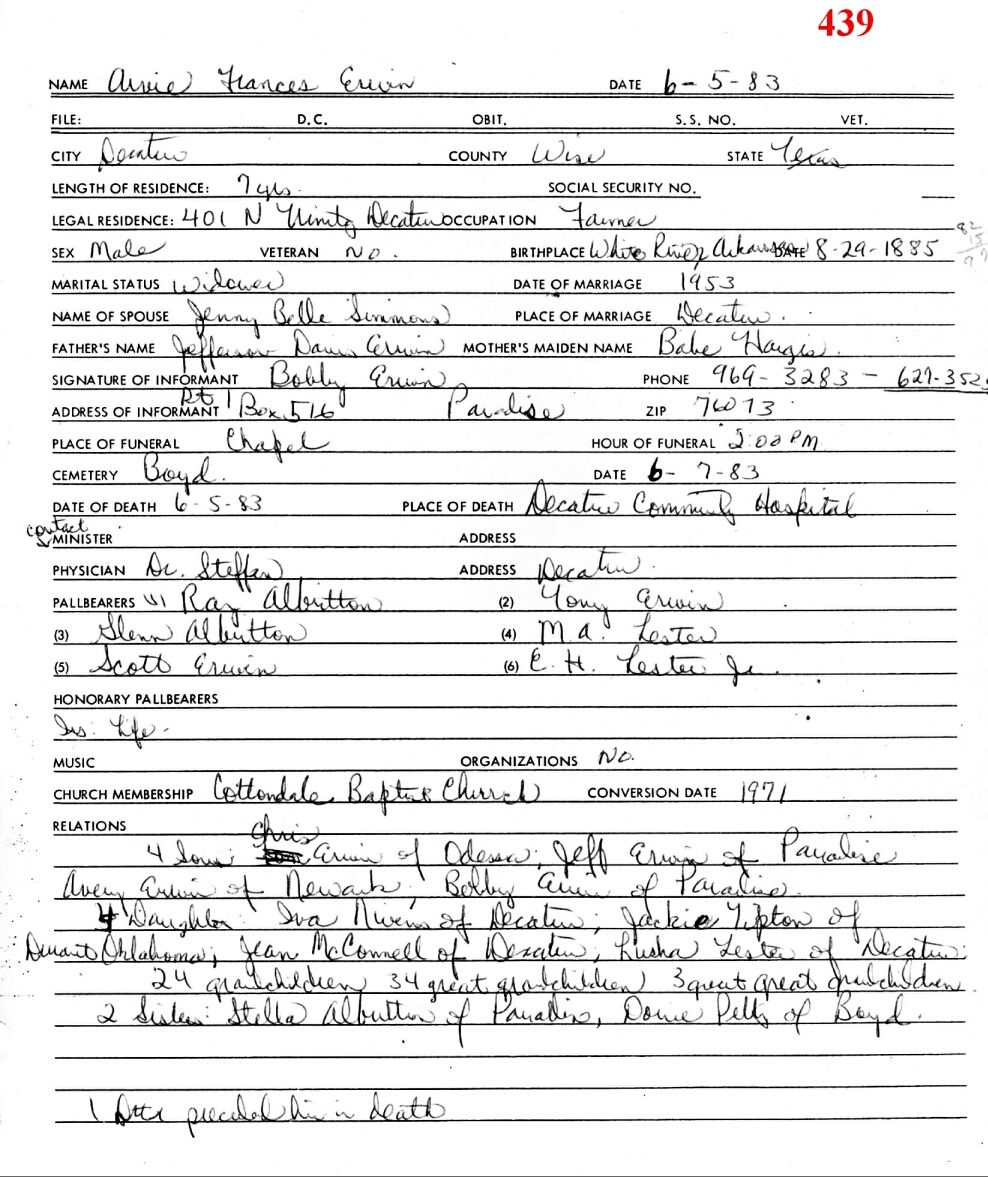 439
NAME Arvie Frances Erwin DATE 6-5-83
FILE: D.C. OBIT. S.S. NO. VET.
CITY Decatur COUNTY Wise STATE Texas
LENGTH OF RESIDENCE: 7 yrs. SOCIAL SECURITY NO.
LEGAL RESIDENCE: 401 N Trinity Decatur OCCUPATION Farmer
SEX Male VETERAN No. BIRTHPLACE White River, Arkansas DATE 8-29-1885
MARITAL STATUS Widower DATE OF MARRIAGE 1953
NAME OF SPOUSE Jenny Belle Simmons PLACE OF MARRIAGE Decatur.
FATHER'S NAME Jefferson Davis Erwin MOTHER'S MAIDEN NAME Babe Hargis.
SIGNATURE OF INFORMANT Bobby Erwin PHONE 969-3283 - 627-352
ADDRESS OF INFORMANT Rt 1 Box 516 Paradise ZIP 76073
PLACE OF FUNERAL Chapel HOUR OF FUNERAL 2:00 PM
CEMETERY Boyd. DATE 6-7-83
DATE OF DEATH 6-5-83 PLACE OF DEATH Decatur Community Hospital
contact
MINISTER ADDRESS
PHYSICIAN Dr. Steffan ADDRESS Decatur.
PALLBEARERS (1) Ray Albritton (2) Tony Erwin
(3) Glenn Albritton (4) M.A. Lester
(5) Scott Erwin (6) E.H. Lester Jr.
HONORARY PALLBEARERS
Ins: Life.
MUSIC ORGANIZATIONS No.
CHURCH MEMBERSHIP Cottondale Baptist Church CONVERSION DATE 1971
RELATIONS
4 Sons: Chris Erwin of Odessa; Jeff Erwin of Paradise
Avery Erwin of Newark; Bobby Erwin of Paradise.
4 Daughters: Iva Nivens of Decatur; Jackie Tipton of
Durant Oklahoma; Jean McConnell of Decatur; Lusha Lester of Decatur.
24 grandchildren 34 great grandchildren 3 great great grandchildren
2 Sisters: Stella Albritton of Paradise, Dovie Pelts of Boyd.
1 Dtr preceded him in death